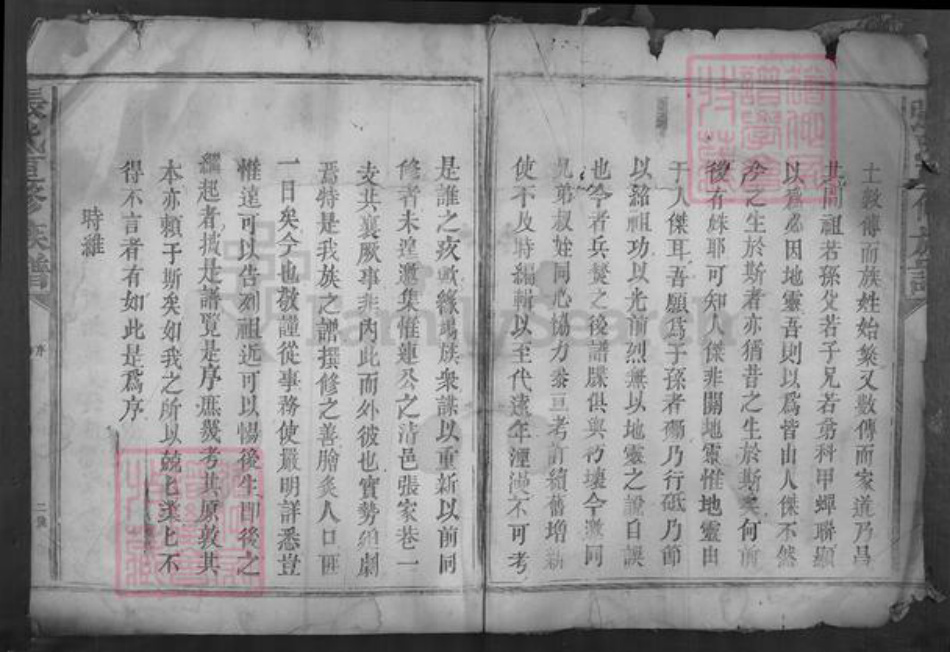 士數傳而族姓始繁又數傳而家道乃昌
其間祖若孫父若子兄若弟科甲蟬聯顯
以為必因地靈吾則以為皆由人傑不然
今之生於斯者亦猶昔之生於斯矣何前
後有殊耶可知人傑非關地靈惟地靈由
于人傑耳吾願為子孫者礪乃行砥乃節
以銘祖功以光前烈無以地靈之說自誤
也今者兵燹之後譜牒俱與朽壞今邀同
兄弟叔姪同心協力參互考訂續舊增新
使不及時編輯以至代遠年湮漠不可考
是誰之疚歟緣竭族眾謀以重新以前同
修者未遑邀集惟連公之清邑張家巷一
支共襄厥事非內此而外彼也實勢須劇
焉特是我族之譜撰修之善膾炙人口匪
一日矣今也敬謹從事務使嚴明詳悉豈
惟遠可以告列祖近可以暢後生即後之
繼起者披是譜覽是序庶幾考其原敦其
本亦賴于斯矣如我之所以兢兢業業不
得不言者有如此是為序
時維
張氏重修族譜
序
FamilySearch